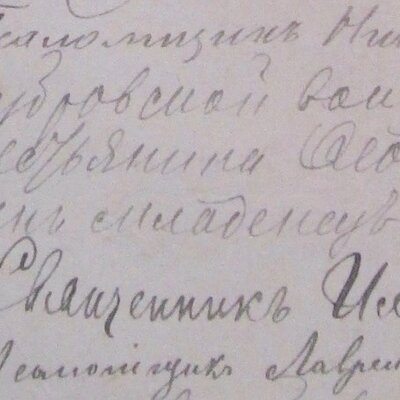 Псаломщикъ Ни
убровской вол
естьянина Ѳео
енъ младенец
Священникъ И
Псаломщикъ Лавре